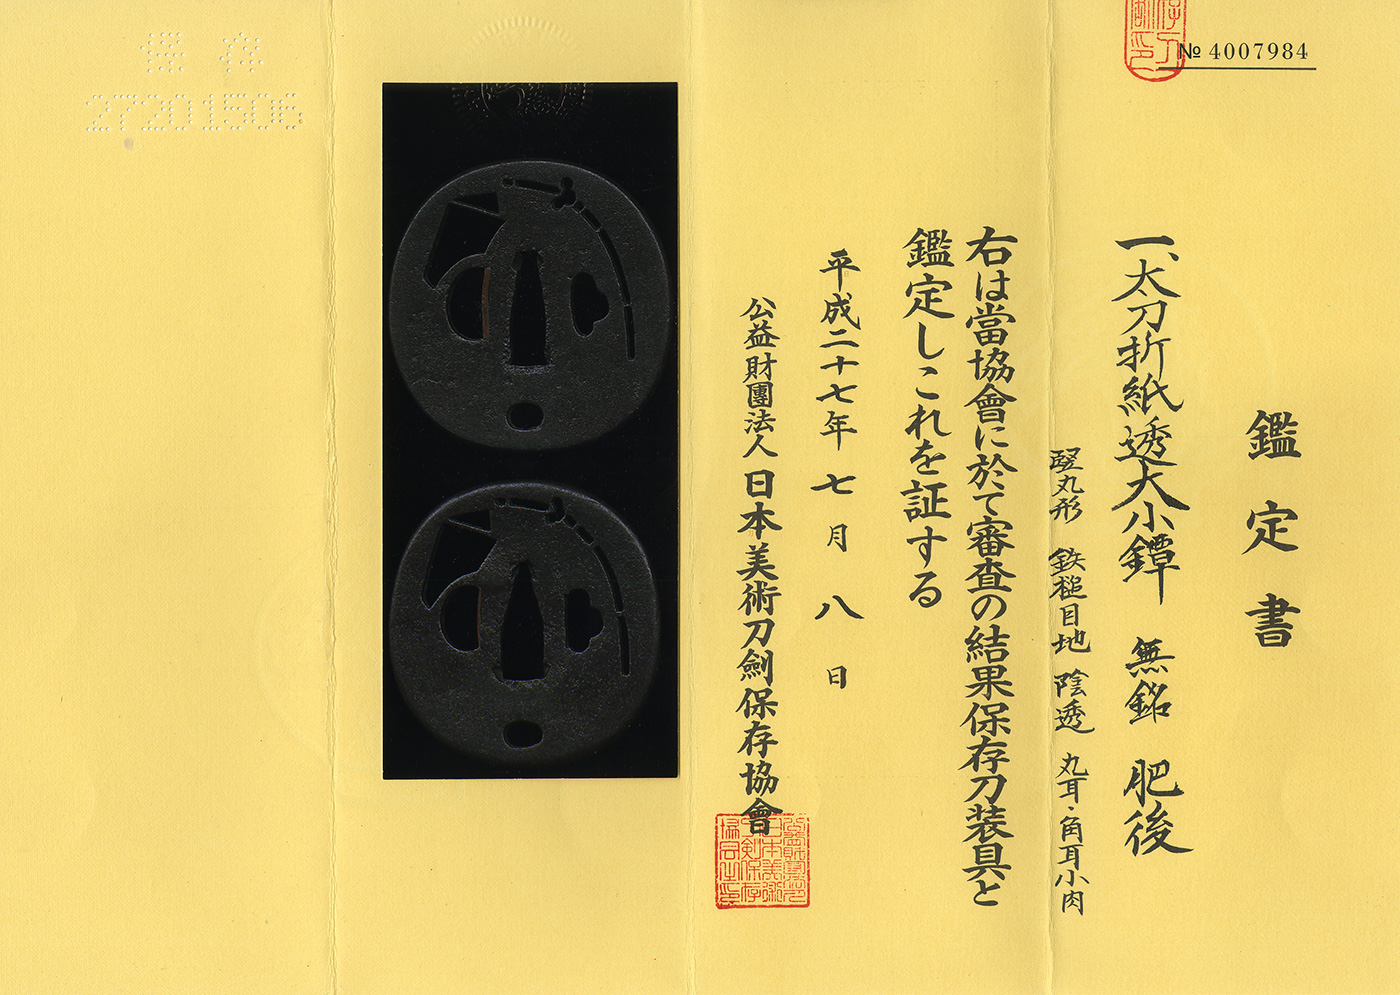 № 4007984
鑑定書
一、太刀折紙透大小鐔 無銘 肥後
竪丸形 鉄槌目地 陰透 丸耳・角耳小肉
右は當協會に於て審査の結果保存刀装具と
鑑定しこれを証する
平成二十七年七月八日
公益財團法人日本美術刀劍保存協會
保存
27201506